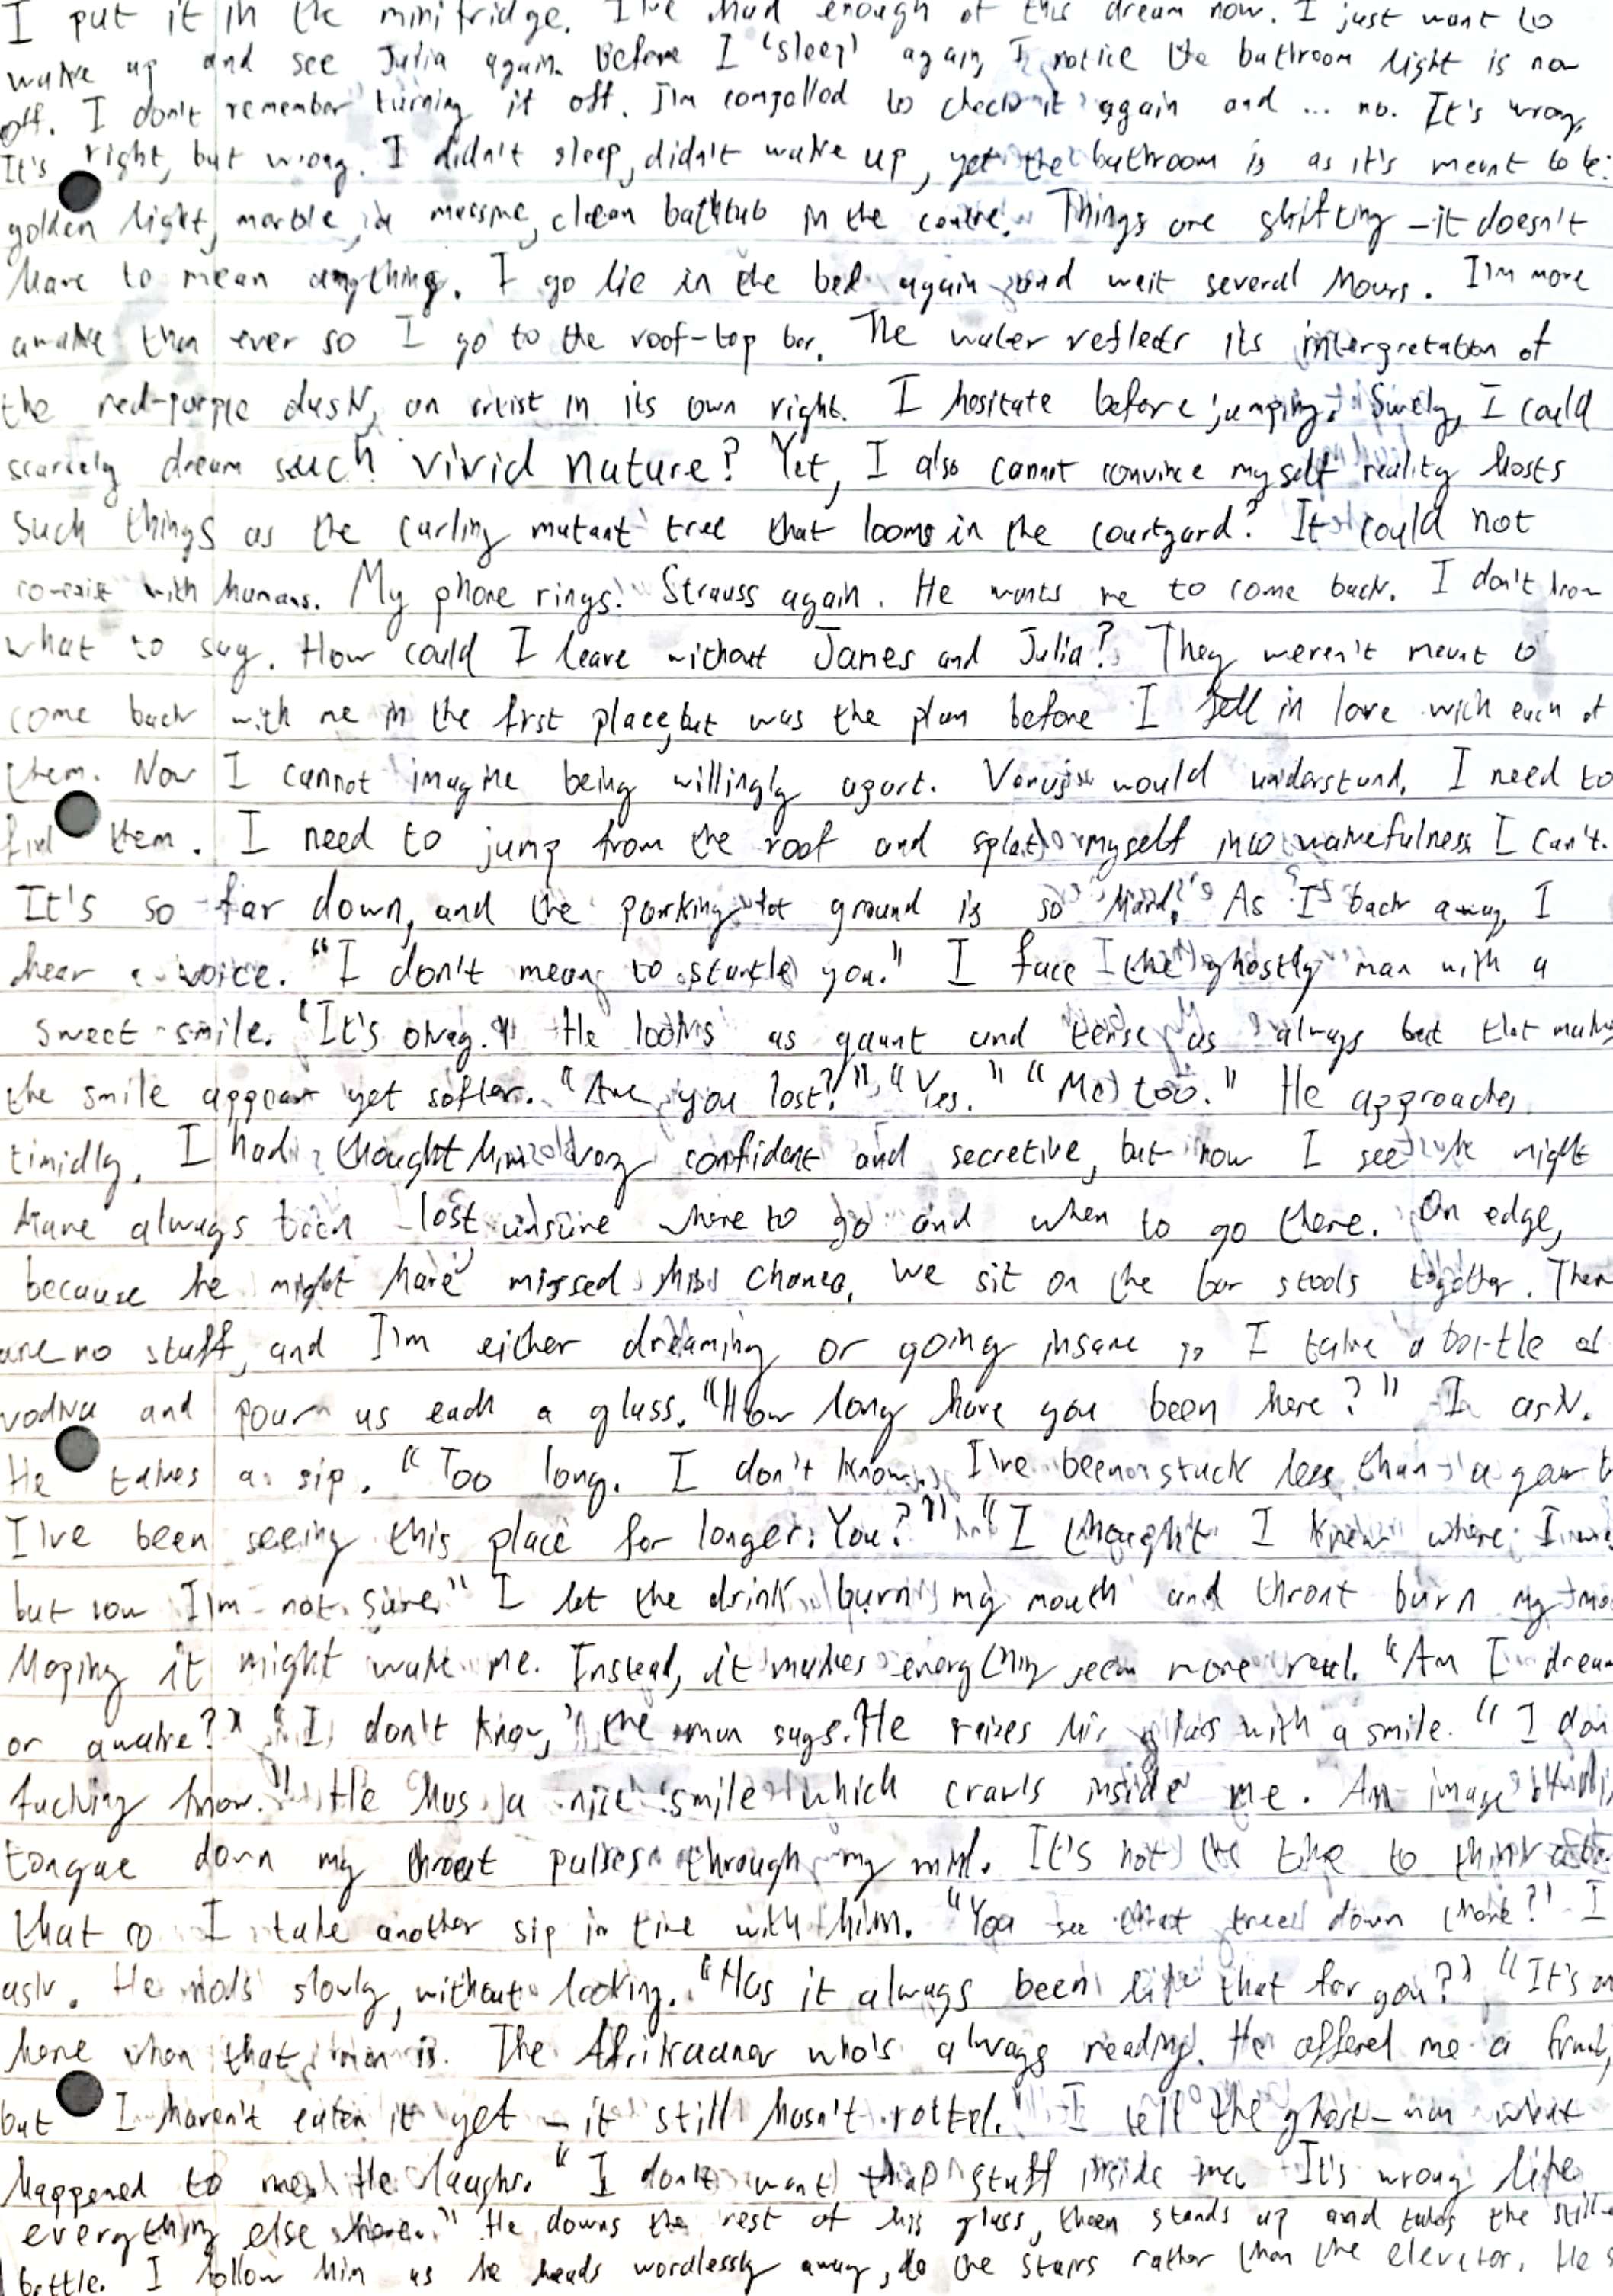 I put it in the mini fridge. I've had enough of this dream now. I just want to
wake up and see Julia again. Before I 'sleep' again, I notice the bathroom light is now
off. I don't remember turning it off. I'm compelled to check it again and ... no. It's wrong,
It's right, but wrong. I didn't sleep, didn't wake up, yet the bathroom is as it's meant to be:
golden light, marble, a massive, clean bathtub in the centre. Things are shifting – it doesn't
have to mean anything. I go lie in the bed again and wait several hours. I'm more
awake than ever so I go to the roof-top bar. The water reflects its intergretation of
the red-purple dusk, an artist in its own right. I hesitate before jumping. Surely, I could
scarcely dream such vivid nature? Yet, I also cannot convince myself reality hosts
such things as the curling mutant tree that looms in the courtyard? It could not
co-exist with humans. My phone rings. Strauss again. He wants me to come back. I don't know
what to say. How could I leave without James and Julia? They weren't meant to
come back with me in the first place, but was the plan before I fell in love with each of
them. Now I cannot imagine being willingly apart. would understand. I need to
find them. I need to jump from the roof and splat myself into wakefulness. I can't.
It's so far down, and the parking lot ground is so hard. As I back away, I
hear a voice. "I don't mean to startle you." I face the ghostly man with a
sweet smile. "It's okay." He looks as gaunt and tense as always but that makes
the smile appear yet softer. "Are you lost?" "Yes." "Me too." He approaches
timidly. I had thought him very confident and secretive, but now I see he might
have always been lost, unsure where to go and when to go there. On edge,
because he might have missed his chance. We sit on the bar stools together. There
are no staff, and I'm either dreaming or going insane so I take a bottle of
vodka and pour us each a glass. "How long have you been here?" I ask.
He takes a sip. "Too long. I don't know. I've been stuck less than a year but
I've been seeing this place for longer. You?" "I thought I knew where I was
but now I'm not sure." I let the drink burn my mouth and throat burn my
hoping it might wake me. Instead, it makes everything seem more real. "Am I dream
or awake?" "I don't know," the man says. He raises his glass with a smile. "I don
fucking know." He has a nice smile which crawls inside me. An image of his
tongue down my throat pulses through my mind. It's not the time to think about
that so I take another sip in time with him. "You see that tree down there?" I
ask. He nods slowly, without looking. "Has it always been like that for you?" "It's on
here when that man is. The Afrikaaner who's always reading. He offered me a fruit,
but I haven't eaten it yet – it still hasn't rotted." I tell the ghost-man what
happened to me. He laughs. "I don't want that stuff inside me. It's wrong like
everything else here." He downs the rest of his glass, then stands up and takes the
bottle. I follow him as he heads wordlessly away, to the stairs rather than the elevator. He